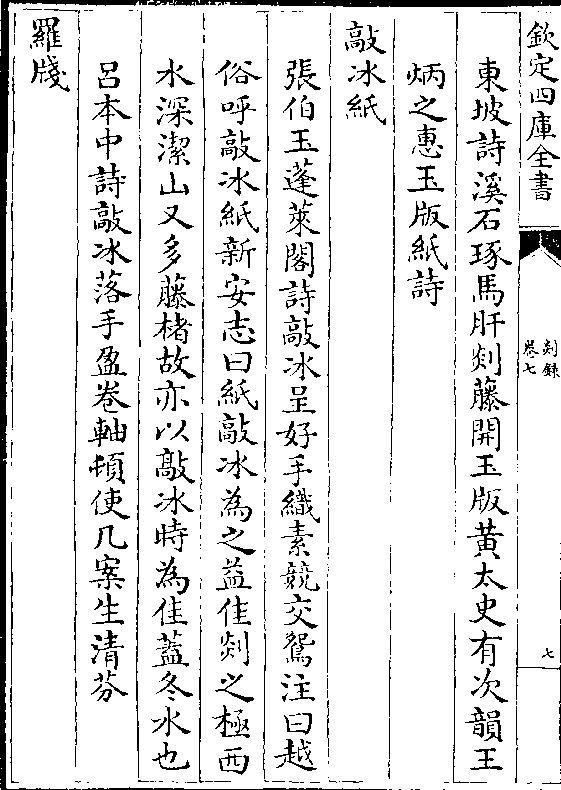 欽定四庫全書
剡録
卷七
七
東坡詩溪石琢馬肝剡藤開玉版黄太史有次韻王
炳之惠玉版紙詩
敲冰紙
張伯玉蓬萊閣詩敲冰呈好手織素競交鴛注曰越
俗呼敲冰紙新安志曰紙敲冰為之益佳剡之極西
水深潔山又多藤楮故亦以敲冰時為佳蓋冬水也
吕本中詩敲冰落手盈卷軸頓使几案生清芬
羅牋